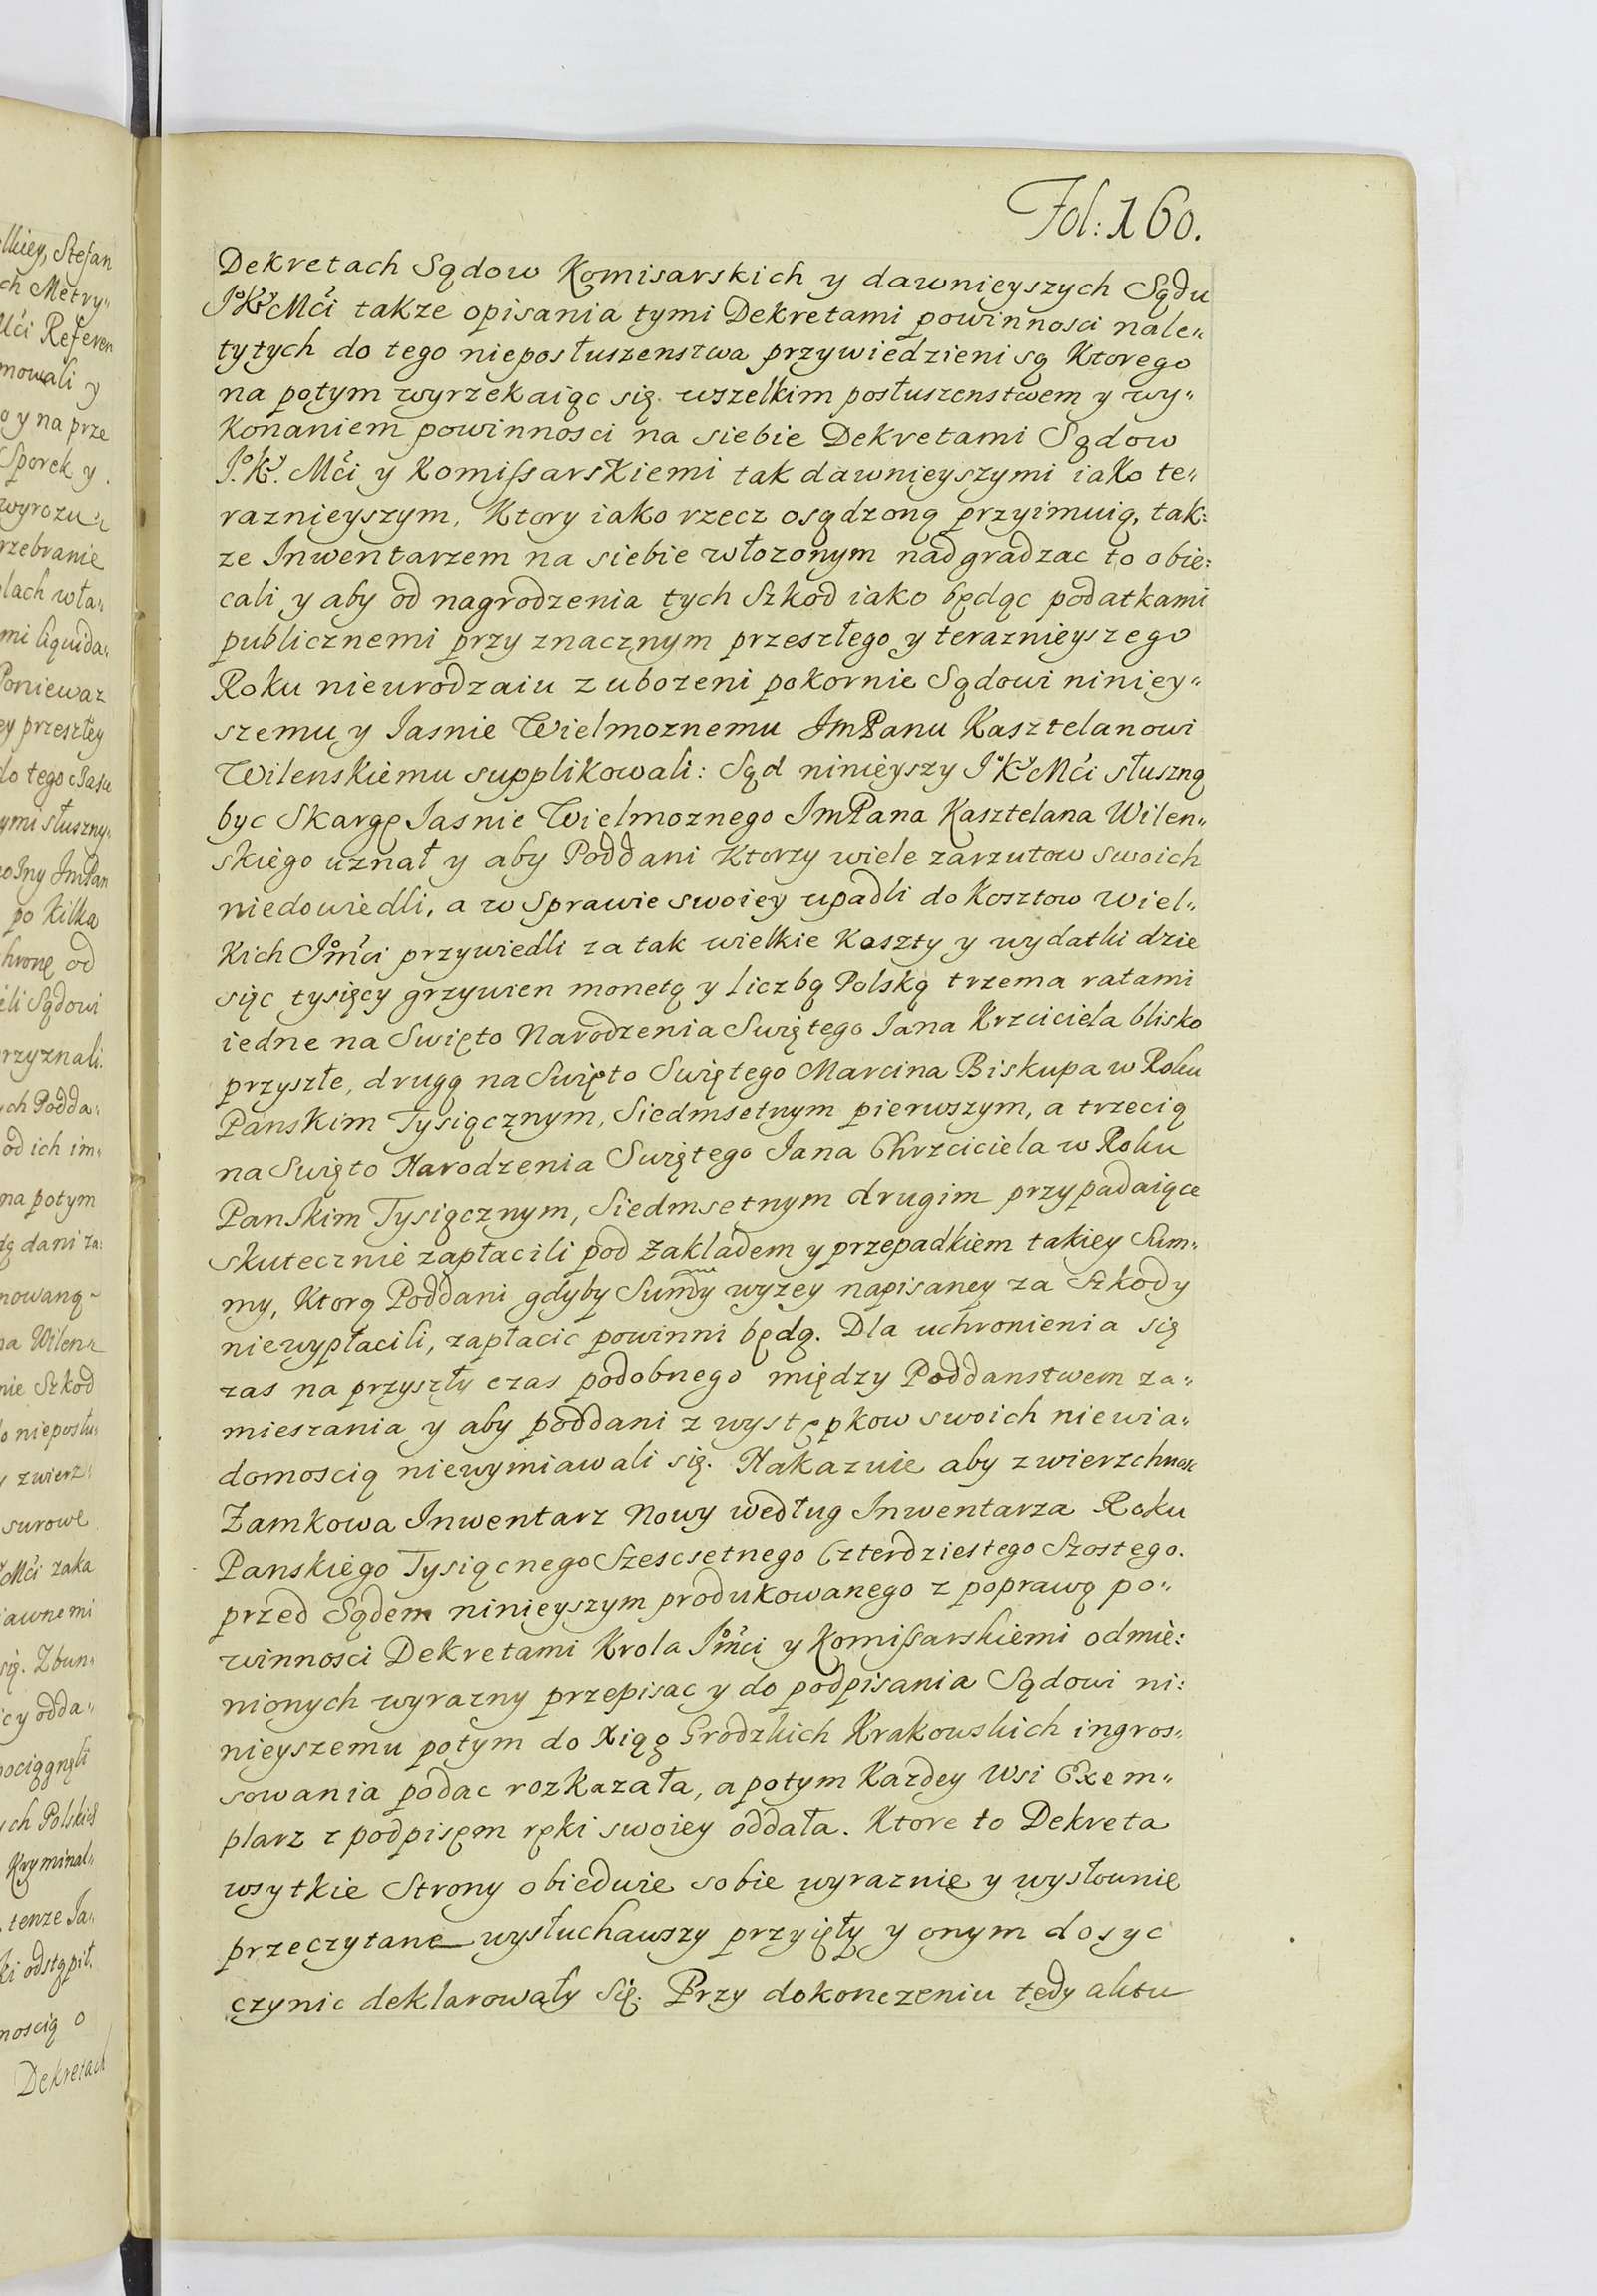 Fol: 160.
Dekretach Sądow Komisarskich y dawnieyszych Sądu
JoKrMći takze opisania tymi Dekretami powinnosci nale„
tytych do tego nieposłuszenstwa przywiedzieni są Ktorego
na potym wyrzekaiąc się wszelkim posłuszenstwem y wy„
Konaniem powinnosci na siebie Dekretami Sądow
Jo. Kr. Mći y Komissarskiemi tak dawnieyszymi iako te„
raznieyszym, Ktory iako rzecz osądzoną przyimuią, tak:
ze Inwentarzem na siebie włozonym nadgradzac to obie:
cali y aby od nagrodzenia tych Szkod iako będąc podatkami
publicznemi przy znacznym przeszłego y teraznieyszego
Roku nieurodzaiu zubozeni pokornie Sądowi niniey„
szemu y Iasnie Wielmoznemu ImPanu Kasztelanowi
Wilenskiemu supplikowali: Sąd ninieyszy JoKrMći słuszną
byc Skargę Iasnie Wielmoznego ImPana Kasztelana Wilen„
skiego uznał y aby Poddani Ktorzy wiele zarzutow swoich
niedowiedli, a w Sprawie swoiey upadli do Kosztow Wiel„
Kich Jomći przywiedli za tak wielkie Koszty y wydatki dzie
siąc tysięcy grzywien monetą y liczbą Polską trzema ratami
iedne na Swięto Narodzenia Swiętego Iana Krzciciela blisko
przyszłe, drugą na Swięto Swiętego Marcina Biskupa w Roku
Panskim Tysiącznym, Siedmsetnym pierwszym, a trzecią
na Swięto Narodzenia Swiętego Iana Chrzciciela w Roku
Panskim Tysiącznym, Siedmsetnym drugim przypadaiące
skutecznie zapłacili pod Zakladem y przepadkiem takiey Sum„
my, Ktorą Poddani gdyby Summy wyzey napisaney za Szkody
niewypłacili, zapłacic powinni będą. Dla uchronienia się
zas na przyszły czas podobnego między Poddanstwem za„
mieszania y aby poddani z występkow swoich niewia„
domoscią niewymiawali się. Nakazuie aby zwierzchnosc
Zamkowa Inwentarz Nowy według Inwentarza Roku
Panskiego Tysiącnego Szescsetnego Czterdziestego Szostego.
przed Sądem ninieyszym produkowanego z poprawą po„
winnosci Dekretami Krola Jomći y Komissarskiemi odmie:
nionych wyrazny przepisac y do podpisania Sądowi ni:
nieyszemu potym do Xiąg Grodzkich Krakowskich ingros„
sowania podac rozkazała, a potym Kazdey Wsi Exem„
plarz z podpisem ręki swoiey oddała. Ktore to Dekreta
wsytkie Strony obiedwie sobie wyraznie y wysłownie
przeczytane wysłuchawszy przyięły y onym dosyc
czynic deklarowały się. Przy dokonczeniu tedy aktu